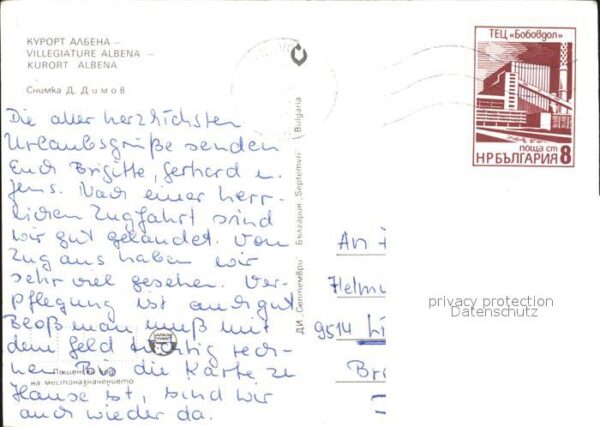 КУРОРТ АЛБЕНА –
VILLEGIATURE ALBENA –
KURORT ALBENA
Снимка Д. Димов
Die aller herzlichsten
Urlaubsgrüße senden
Euch Brigitte, Gerhard u.
Jens. Nach einer herr-
lichen Zugfahrt sind
wir gut gelandet. Vom
Zug aus haben wir
sehr viel gesehen. Ver-
pflegung ist auch gut
Bloß man muß mit
dem Geld tüchtig rech-
nen. Bis die Karte zu
Hause ist, sind wir
auch wieder da.
Пощенски код
на местоназначението
ДИ „Септември" България „Septemvri" Bulgaria
ТЕЦ „Бобовдол"
ПОЩА СТ
НР БЪЛГАРИЯ 8
An
Helmu
9514
privacy protection
Datenschutz